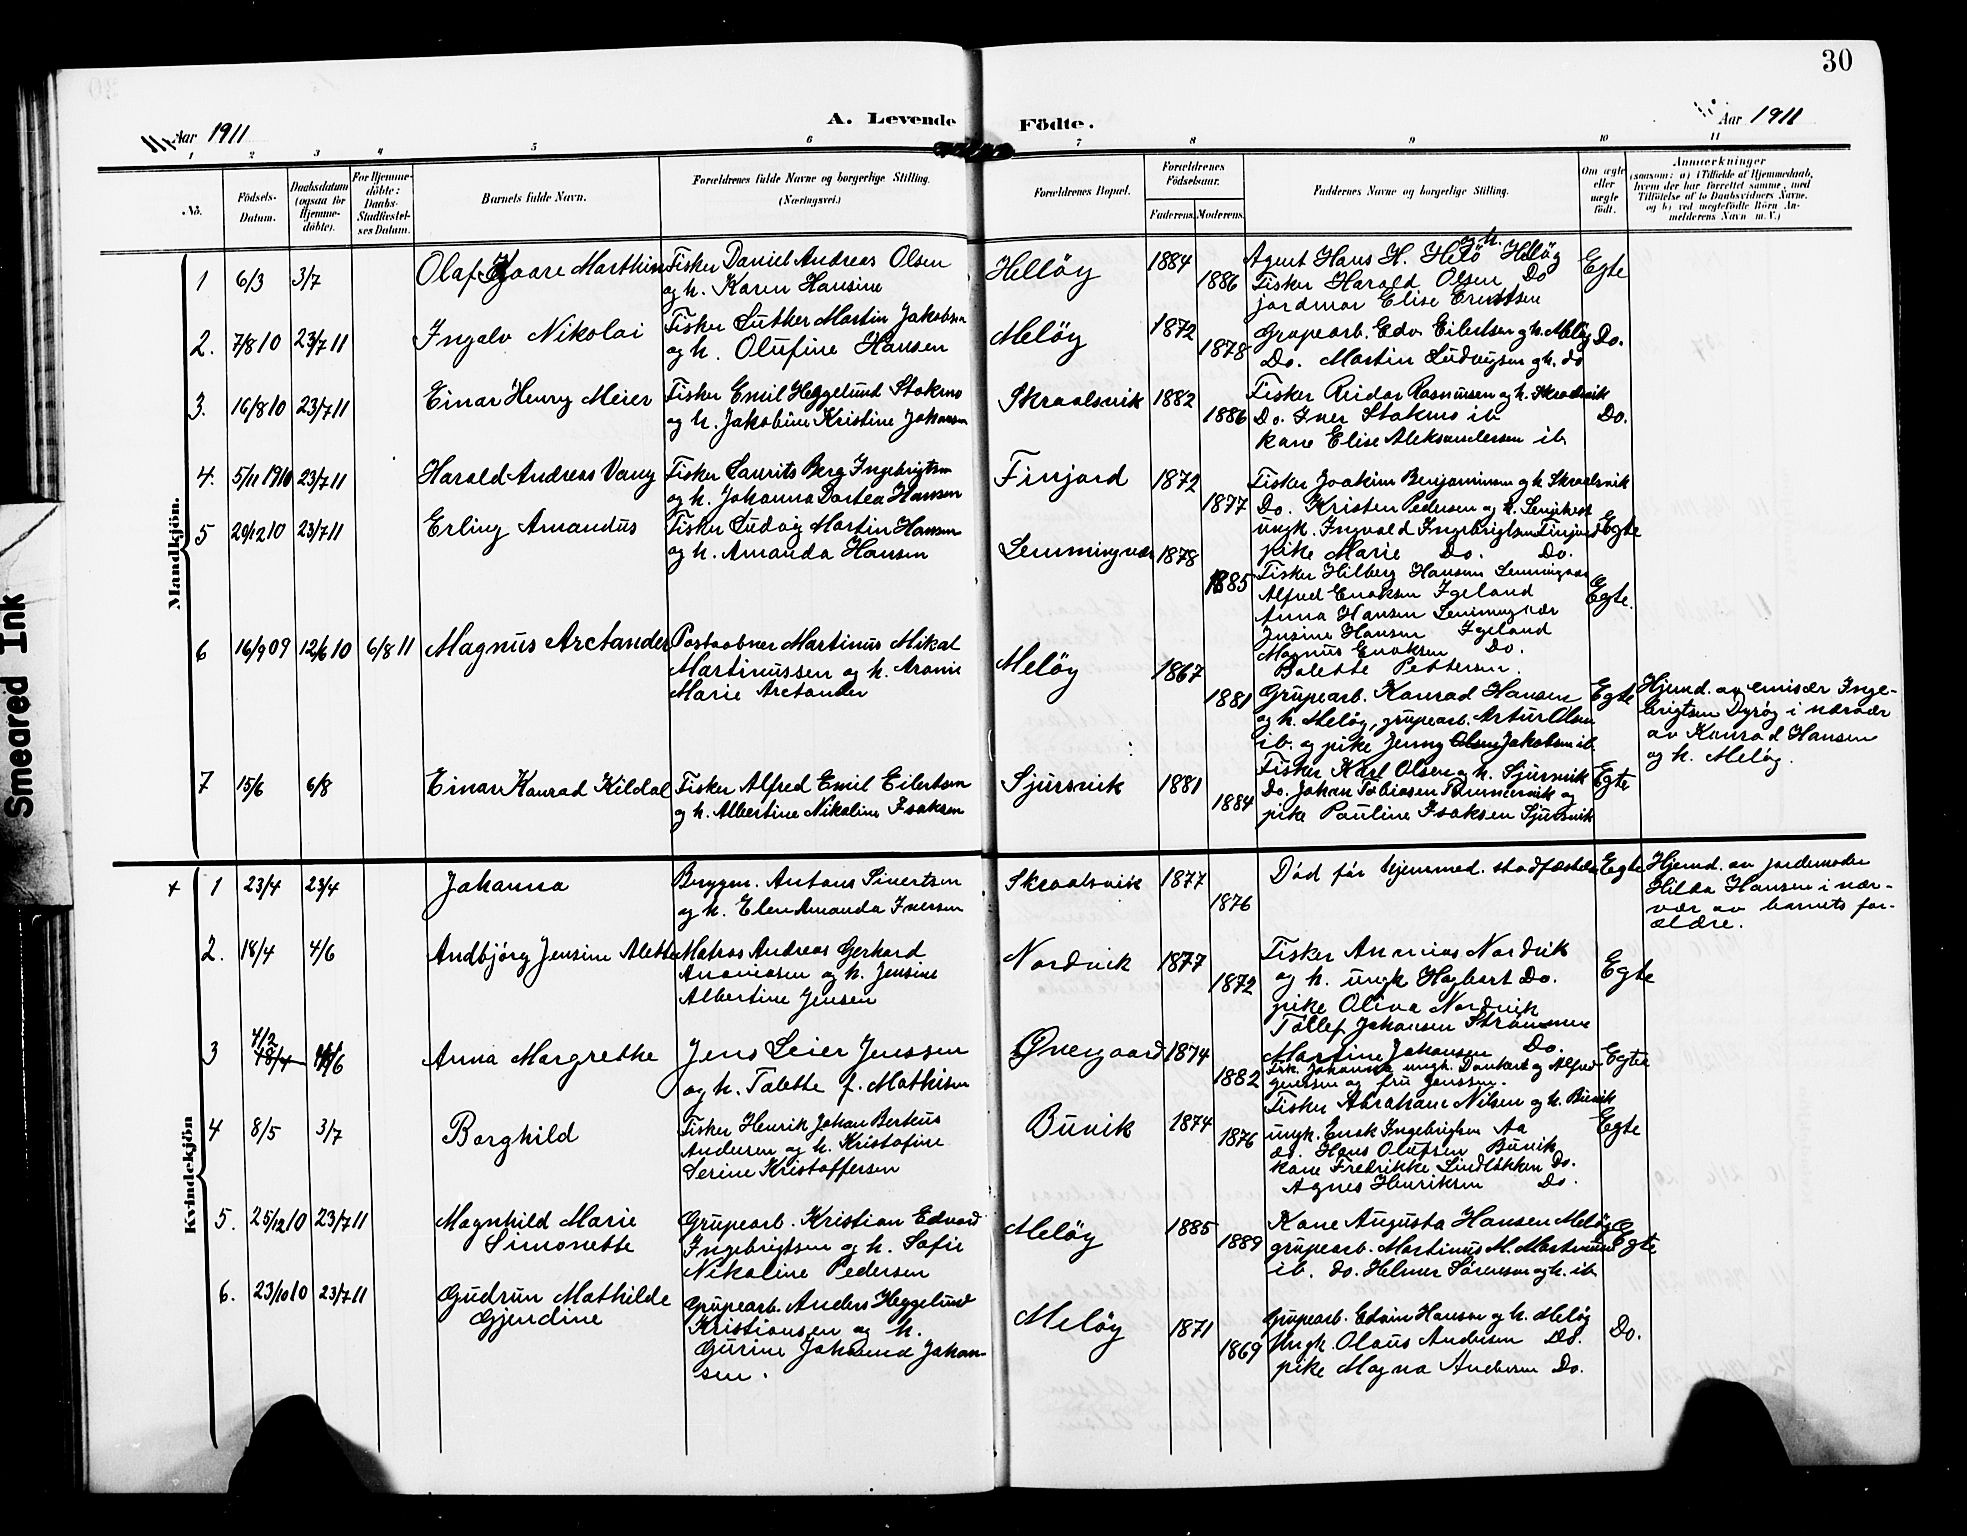 30
Aar 1911
A. Levende Födte.
Aar 1911
1 2 3 4 5 6 7 8 9 10 11
No.
Födsels-
Datum.
Daabsdatum
(ogsaa for
Hjemme-
döbte).
For Hjemme-
döbte:
Daabs-
Stadfæstel-
ses Datum.
Barnets fulde Navn.
Forældrenes fulde Navne og borgerlige Stilling.
(Næringsvei.)
Forældrenes Bopæl.
Forældrenes
Födselsaar.
Faderens. Moderens.
Faddernes Navne og borgerlige Stilling.
Om ægte
eller
uægte
födt.
Anmærkninger
(saasom: a) i Tilfælde af Hjemmedaab,
hvem der har forrettet samme, med
Tilföielse af to Daabsvidners Navne,
og b) ved uægtefödte Börn An-
melderens Navn m. V.)
Mandkjön.
1 6/3 3/7 Olaf Kaare Marthin
Fisker Daniel Andreas Olsen
og h. Karen Hansine
Hellöy 1884 1886
Agent Hans H. Hellöy
og h.
Fisker Harald Olsen Do
jordmor Elise Erentsen
Egte
2. 7/8 10 23/7 11 Ingalv Nikolai
Fisker Luther Martin Jakobsen
og h. Olufine Hansen
Melöy 1872 1878
Grupearb. Edv. Eilertsen og h. Melöy
Do. Martin Ludvigsen og h. do
Do.
3. 16/8 10 23/7 11 Einar Henry Meier
Fisker Emil Heggelund Stokmo
og h. Jakobine Kristine Johansen
Skraalsvik 1882 1886
Fisker Reidar Rasmussen og h. Skraalsvik
Do. Iver Stokmo ib
kone Elise Aleksandersen ib.
Do.
4. 5/11 1910 23/7 11 Harald Andreas Vang
Fisker Laurits Berg Ingebrigtsen
og h. Johanna Dortea Hansen
Finjord 1872 1877
Fisker Joakim Benjaminsen og h. Skraalsvik
Do. Kristen Pedersen og h.
ungk. Ingvald Ingebrigtsen Finjord
pike Marie Do. Do.
Egte
5 29/12 10 23/7 11 Erling Amandus
Fisker Ludvig Martin Hansen
og h. Amanda Hansen
Lemmingvær 1878 1885
Fisker Hilberg Hansen Lemmingvær
Alfred Enoksen Igeland
Anna Hansen Lemmingvær
Jensine Hansen Igeland
Magnus Enoksen Do.
Bolette Pettersen.
Egte.
6 16/9 09 12/6 10 6/8 11 Magnus Arctander
Postaabner Martinus Mikal
Martinussen og h.
Marie Arctander
Melöy 1867 1881
Grupearb. Konrad Hansen
og h. Melöy, grupearb. Artur Olsen
ib. og pike Jenny Olsen Jakobsen ib.
Egte
Hjemd. av emisær Inge-
brigtsen Dyröy i nærvær
av Konrad Hansen
og h. Melöy.
7 15/6 6/8 Einar Konrad Kildal
Fisker Alfred Emil Eilertsen
og h. Albertine Nikoline Isaksen
Sjursvik 1881 1884
Fisker Karl Olsen og h. Sjursvik
Do. Johan Tobiasen og
pike Pauline Isaksen Sjursvik
Egte
Kvindekjön
+ 1 23/4 23/4 Johanna
Antons Sivertsen
og h. Elen Amanda Iversen
Skraalsvik 1877 1876
Död før hjemmed. stadfæstelse
Egte
Hjemd. av jordemoder
Hilda Hansen i nær-
vær av barnets for-
ældre.
2. 18/4 4/6 Andbjörg Jensine Alette
Matros Andreas Gerhard
Ananiasen og h. Jensine
Albertine Jensen
Nordvik 1877 1872
Fisker Annias Nordvik
og h. ungk Hagbart Do.
pike Oliva Nordvik
Egte
3 4/2 18/4 4/6 Anna Margrethe
Jens Leier Jenssen
og h. Talette f. Mathisen
Övergaard 1874 1882
Tollef Johansen Strömmen
Martine Johansen Do.
Frk. Johanna ungk. Dankert og Alfred
Jenssen og fru Jenssen.
Egte
4 8/5 3/7 Borghild
Fisker Henrik Johan Berteus
Andersen og h. Kristofine
Serine Kristoffersen
Buvik 1874 1876
Fisker Abraham Nilsen og h. Buvik
ungk. Enok Ingebrigtsen Aa
do. Hans Olufsen Buvik
kone Fredrikke Lindbakken Do.
Agnes Henriksen Do.
Egte
5. 25/12 10 23/7 11 Magnhild Marie
Simonette
Grupearb. Kristian Edvard
Ingebrigtsen og h. Sofie
Nikoline Pedersen
Melöy 1885 1889
Kone Augusta Hansen Melöy
grupearb. Martinus M. Martinussen
ib. do. Helmer Sörensen og h. ib
Egte
6. 23/10 10 23/7 11 Gudrun Mathilde
Gjendine
Grupearb. Anders Heggelund
Kristiansen og h.
Gurine Johanna Johan-
sen.
Melöy 1871 1869
Grupearb. Edvin Hansen og h. Melöy
Ungk. Olaus Andersen Do.
pike Magna Andersen Do.
Do.
Smeared Ink